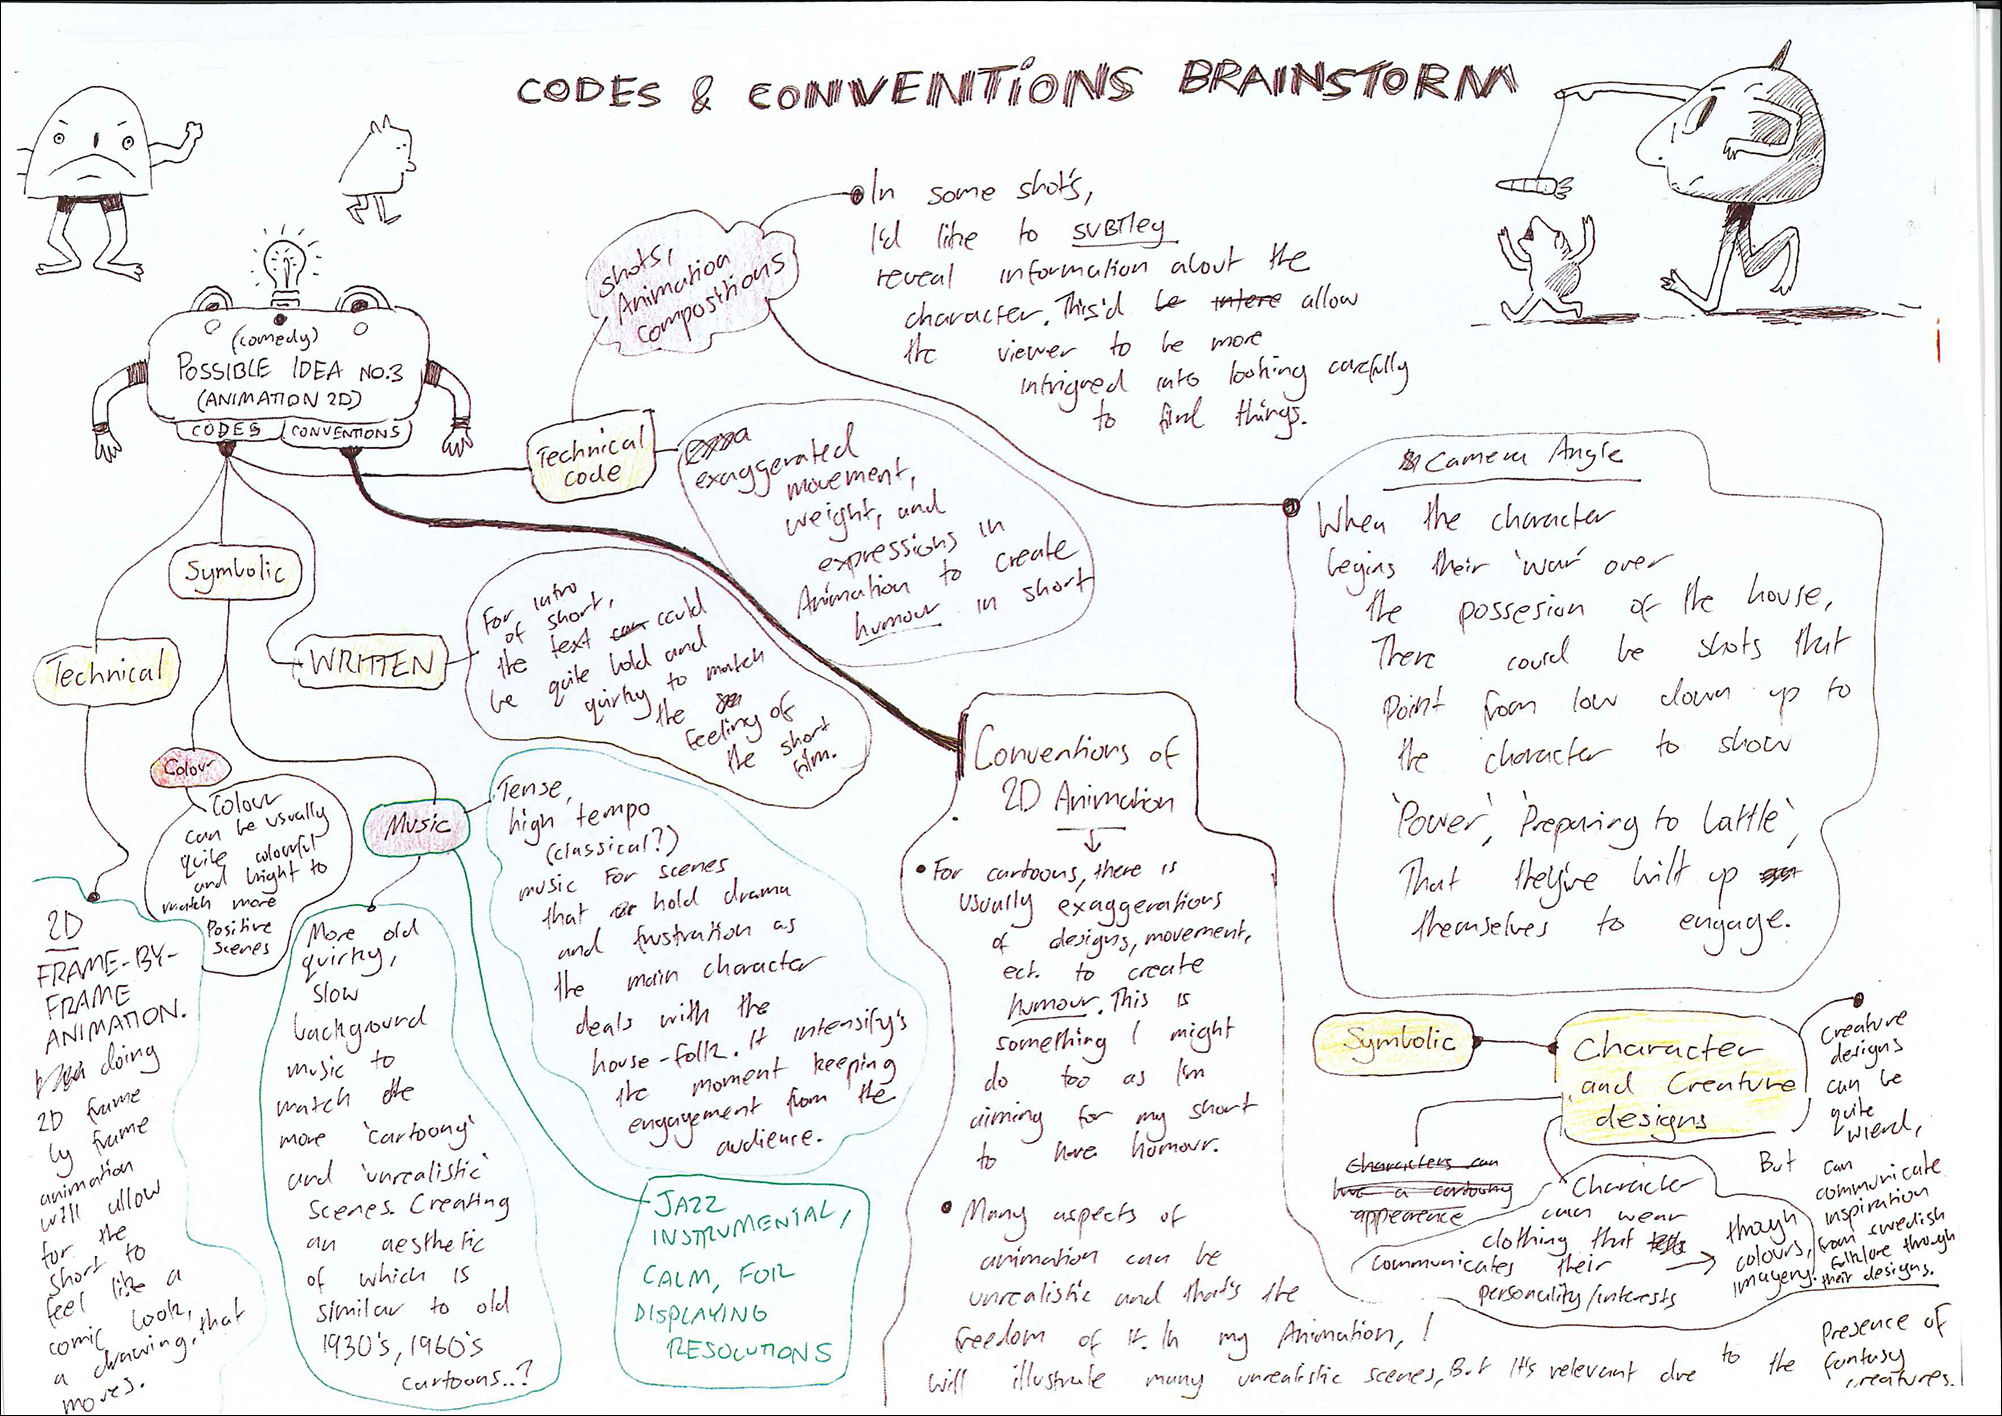 CODES & CONVENTIONS BRAINSTORM
(comedy)
POSSIBLE IDEA NO.3
(ANIMATION 2D)
CODES
CONVENTIONS
Shots,
Animation
compositions
In some shot's,
I'd like to SUBTley
reveal information about the
character. This'd be intere allow
the viewer to be more
intrigued into looking carefully
to find things.
Technical
code
exaggerated
movement,
weight, and
expressions in
Animation to create
humour in short
Camera Angle
When the character
begins their 'war' over
the possesion of the house,
There could be shots that
point from low down up to
the character to show
'Power', 'Preparing to battle',
That they've built up
themselves to engage.
Symbolic
Technical
WRITTEN
For intro
of short,
the text can could
be quite bold and
quirky to match
the
feeling of
the short
film.
Colour
Colour
can be usually
quite colourful
and bright to
match more
Positive
Scenes
Music
Tense,
high tempo
(classical?)
music for scenes
that or hold drama
and frustration as
the main character
deals with the
house-folk. It intensify's
the moment keeping
engagement from the
audience.
More old
quirky,
slow
background
music to
match the
more 'cartoony'
and 'unrealistic'
scenes. Creating
an aesthetic
of which is
similar to old
1930's, 1960's
cartoons..?
JAZZ
INSTRUMENTAL,
CALM, FOR
DISPLAYING
RESOLUTIONS
2D
FRAME-BY-
FRAME
ANIMATION.
doing
2D frame
by frame
animation
will allow
for the
short to
feel like a
comic look,
a drawing, that
moves.
Conventions of
2D Animation
• For cartoons, there is
usually exaggerations
of designs, movement,
ect. to create
humour. This is
something I might
do too as I'm
aiming for my short
to have humour.
• Many aspects of
animation can be
unrealistic and that's the
freedom of it. In my Animation, I
will illustrate many unrealistic scenes, But it's relevant due to the
Presence of
fantasy
creatures.
Symbolic
Character
and Creature
designs
Characters can
have a cartoony
appearence
Character
can wear
clothing that tells
communicates their
personality/interests
through
colours,
imagery.
Creature
designs
can be
quite
wierd,
But can
communicate
inspiration
from swedish
folklore through
their designs.